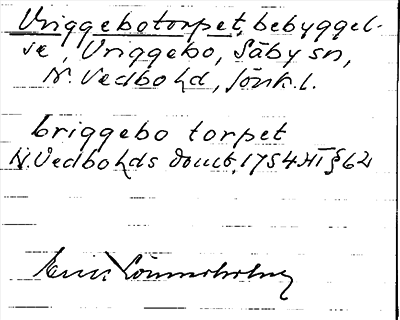 Vriggebotorpet, bebyggel-
se, Vriggebo, Säby sn,
N. Vedbohd, Jönk. l.
Criggebo torpet
N. Vedbohds domb. 1754 HT § 62